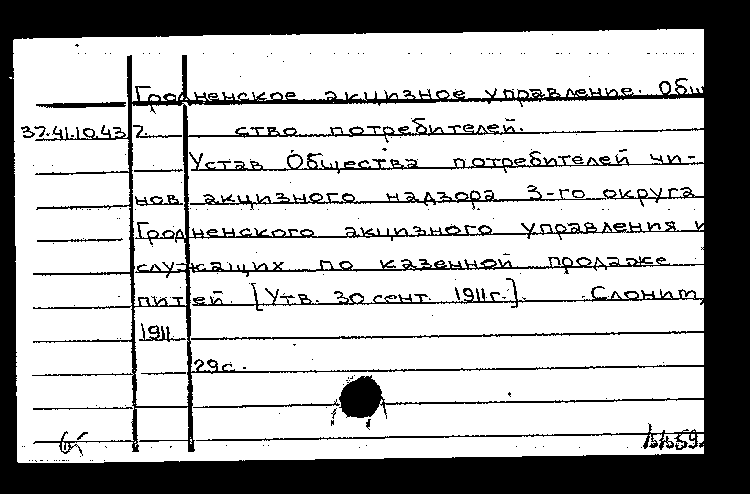 Гродненское акцизное управление. Общ
37.41.10.43 2. ство потребителей.
Устав Общества потребителей чи-
нов акцизного надзора 3-го округа
Гродненского акцизного управления и
служащих по казенной продаже
питей. [Утв. 30 сент. 1911г.]. Слоним,
1911
29с.